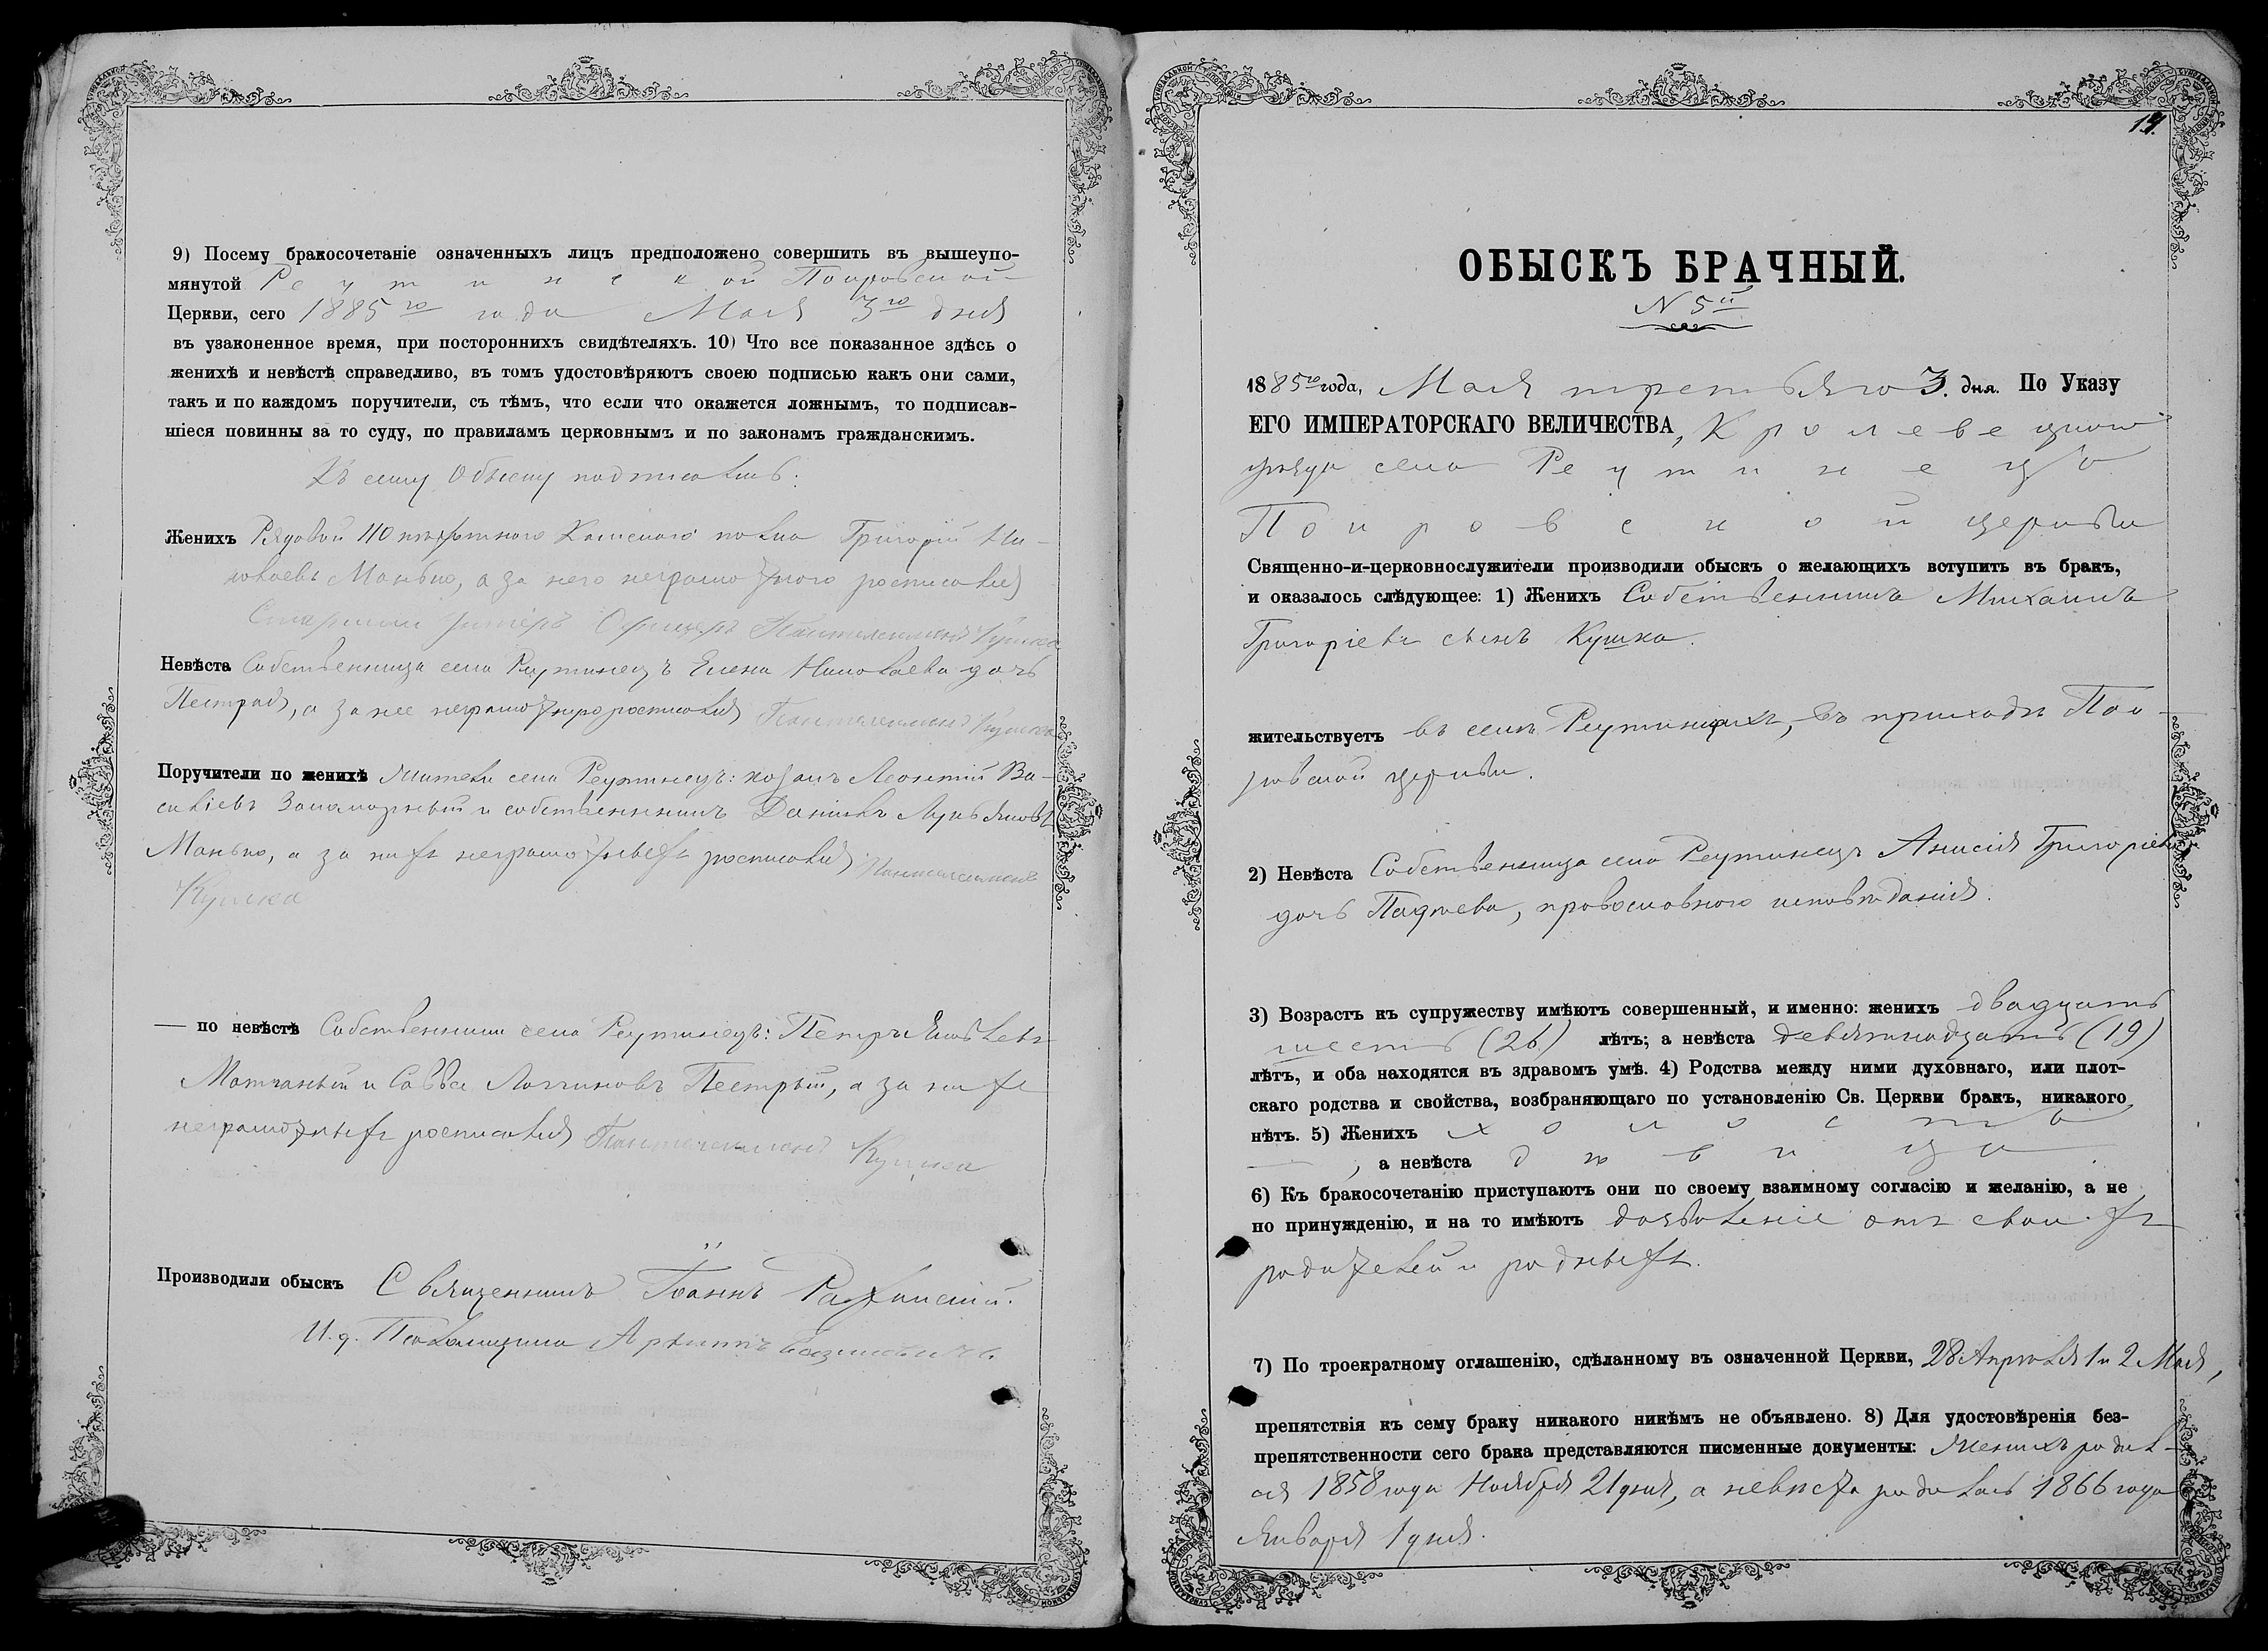 9) Посему бракосочетаніе означенныхъ лицъ предположено совершить въ вышеупо-
мянутой Реутинской Покровской
Церкви, сего 1885го года Мая 3го дня
въ узаконенное время, при постороннихъ свидѣтеляхъ. 10) Что все показанное здѣсь о
женихѣ и невѣстѣ справедливо, въ томъ удостовѣряютъ своею подписью какъ они сами,
такъ и по каждомъ поручители, съ тѣмъ, что если что окажется ложнымъ, то подписав-
шіеся повинны за то суду, по правиламъ церковнымъ и по законамъ гражданскимъ.
Къ сему Обыску подписались:
Женихъ Рядовой 110 пѣхотнаго Камскаго полка Григорій Ни-
колаевъ Манько, а за него неграмотного росписался
Старшій Унтеръ Офицеръ Пантелеимонъ Кушка
Невѣста Собственница села Реутинецъ Елена Николаева дочь
Пестрая, а за нее неграмотную росписался Пантелеимонъ Кушка
Поручители по женихѣ Жители села Реутинецъ: козакъ Леонтій Ва-
силіевъ и собственникъ Даніилъ Лукьяновъ
Манько, а за нихъ неграмотныхъ росписался Пантелеимонъ
Кушка
— по невѣстѣ Собственники села Реутинецъ: Петръ Яковлевъ
и Савва Логгиновъ Пестрый, а за нихъ
неграмотныхъ росписался Пантелеимонъ Кушка
Производили обыскъ Священникъ Іоаннъ
И. д. Псаломщика
14.
ОБЫСКЪ БРАЧНЫЙ.
N 5й
1885го года, Мая третьяго 3. дня. По Указу
ЕГО ИМПЕРАТОРСКАГО ВЕЛИЧЕСТВА, Кролевецкого
уѣзда села Реутинецъ
Покровской церкви
Священно-и-церковнослужители производили обыскъ о желающихъ вступить въ бракъ,
и оказалось слѣдующее: 1) Женихъ Собственникъ Михаилъ
Григоріевъ сынъ Кушка.
жительствуетъ въ селѣ Реутинцахъ, въ приходѣ Пок-
ровской церкви.
2) Невѣста Собственница села Реутинецъ Анисія Григоріева
дочь православного исповѣданія.
3) Возрастъ къ супружеству имѣютъ совершенный, и именно: женихъ двадцать
шесть (26) лѣтъ; а невѣста девятнадцать (19)
лѣтъ, и оба находятся въ здравомъ умѣ. 4) Родства между ними духовнаго, или плот-
скаго родства и свойства, возбраняющаго по установленію Св. Церкви бракъ, никакого
нѣтъ. 5) Женихъ холостъ
—, а невѣста дѣвица.
6) Къ бракосочетанію приступаютъ они по своему взаимному согласію и желанію, а не
по принужденію, и на то имѣютъ дозволеніе отъ своихъ
родителей и родныхъ.
7) По троекратному оглашенію, сдѣланному въ означенной Церкви, 28 Апрѣля 1 и 2 Мая,
препятствія къ сему браку никакого никѣмъ не объявлено. 8) Для удостовѣренія без-
препятственности сего брака представляются писменные документы: Женихъ родил-
ся 1858 года Ноября 21 дня, а невѣста родилась 1866 года
Января 1 дня.